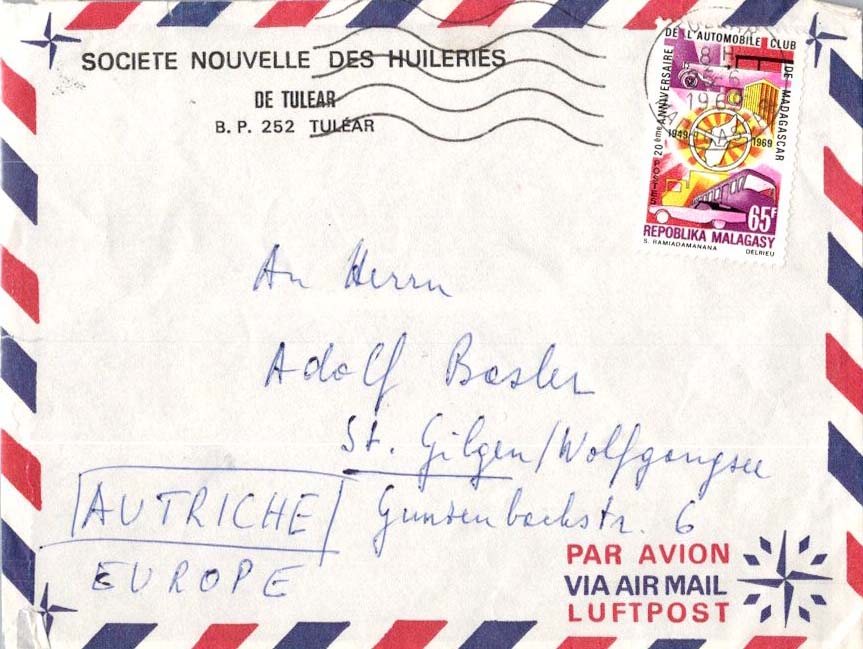 SOCIETE NOUVELLE DES HUILERIES
DE TULEAR
B. P. 252 TULÉAR
20ème ANNIVERSAIRE DE L'AUTOMOBILE CLUB DE MADAGASCAR
8 H
25-6
1969
1949
1969
POSTES
65F
REPOBLIKA MALAGASY
S. RAMIADAMANANA DELRIEU
An Herrn
Adolf Basler
St. Gilgen/Wolfgangsee
AUTRICHE
Gunsenbachstr. 6
EUROPE
PAR AVION
VIA AIR MAIL
LUFTPOST